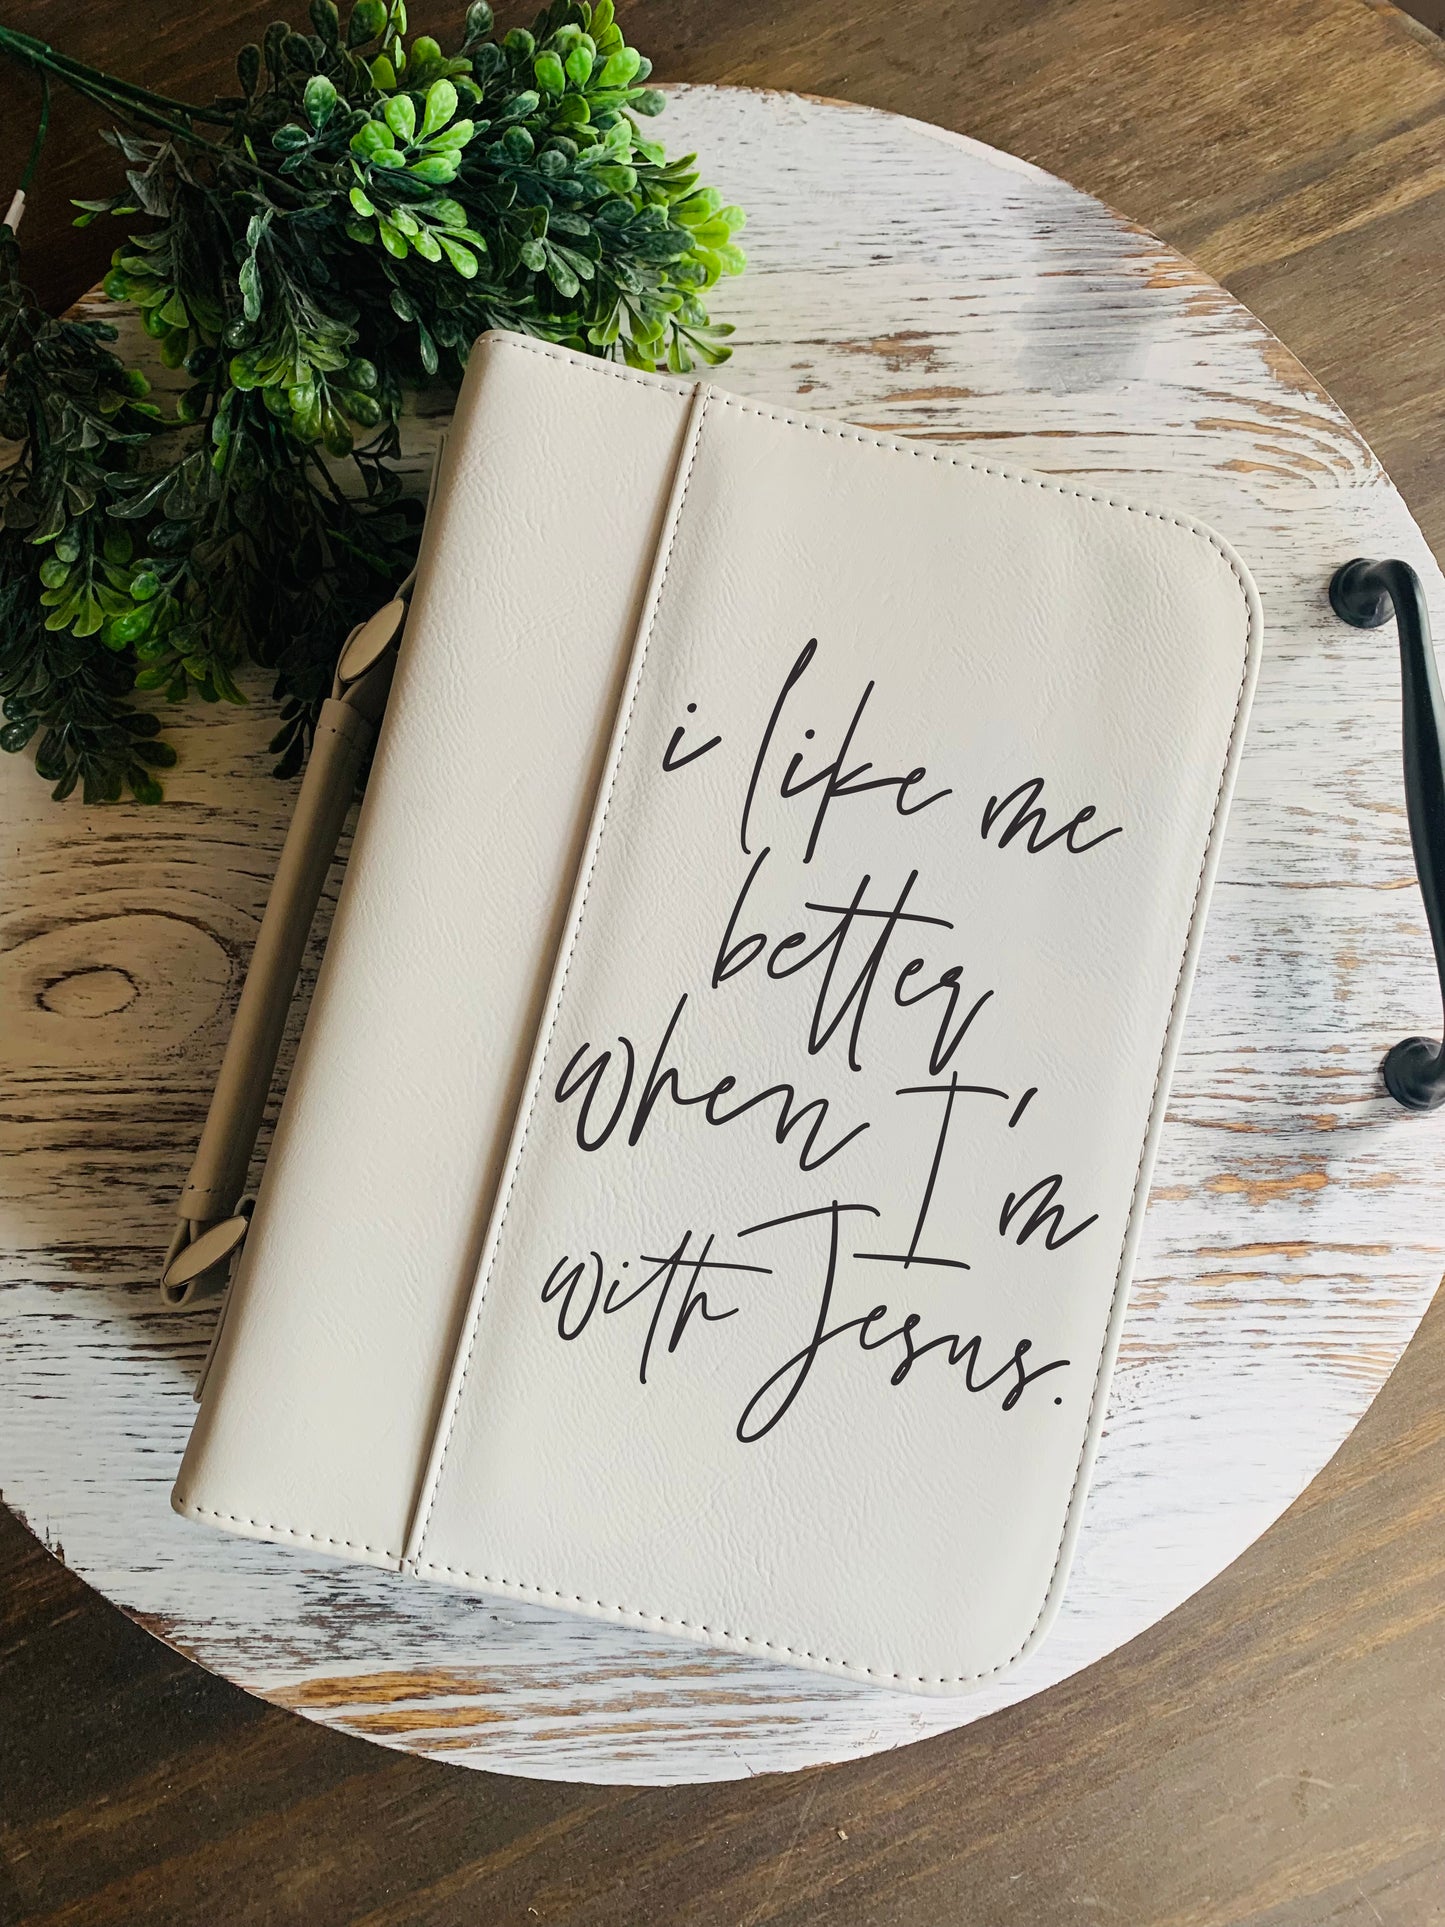 i like me
better
when I'm
with Jesus.